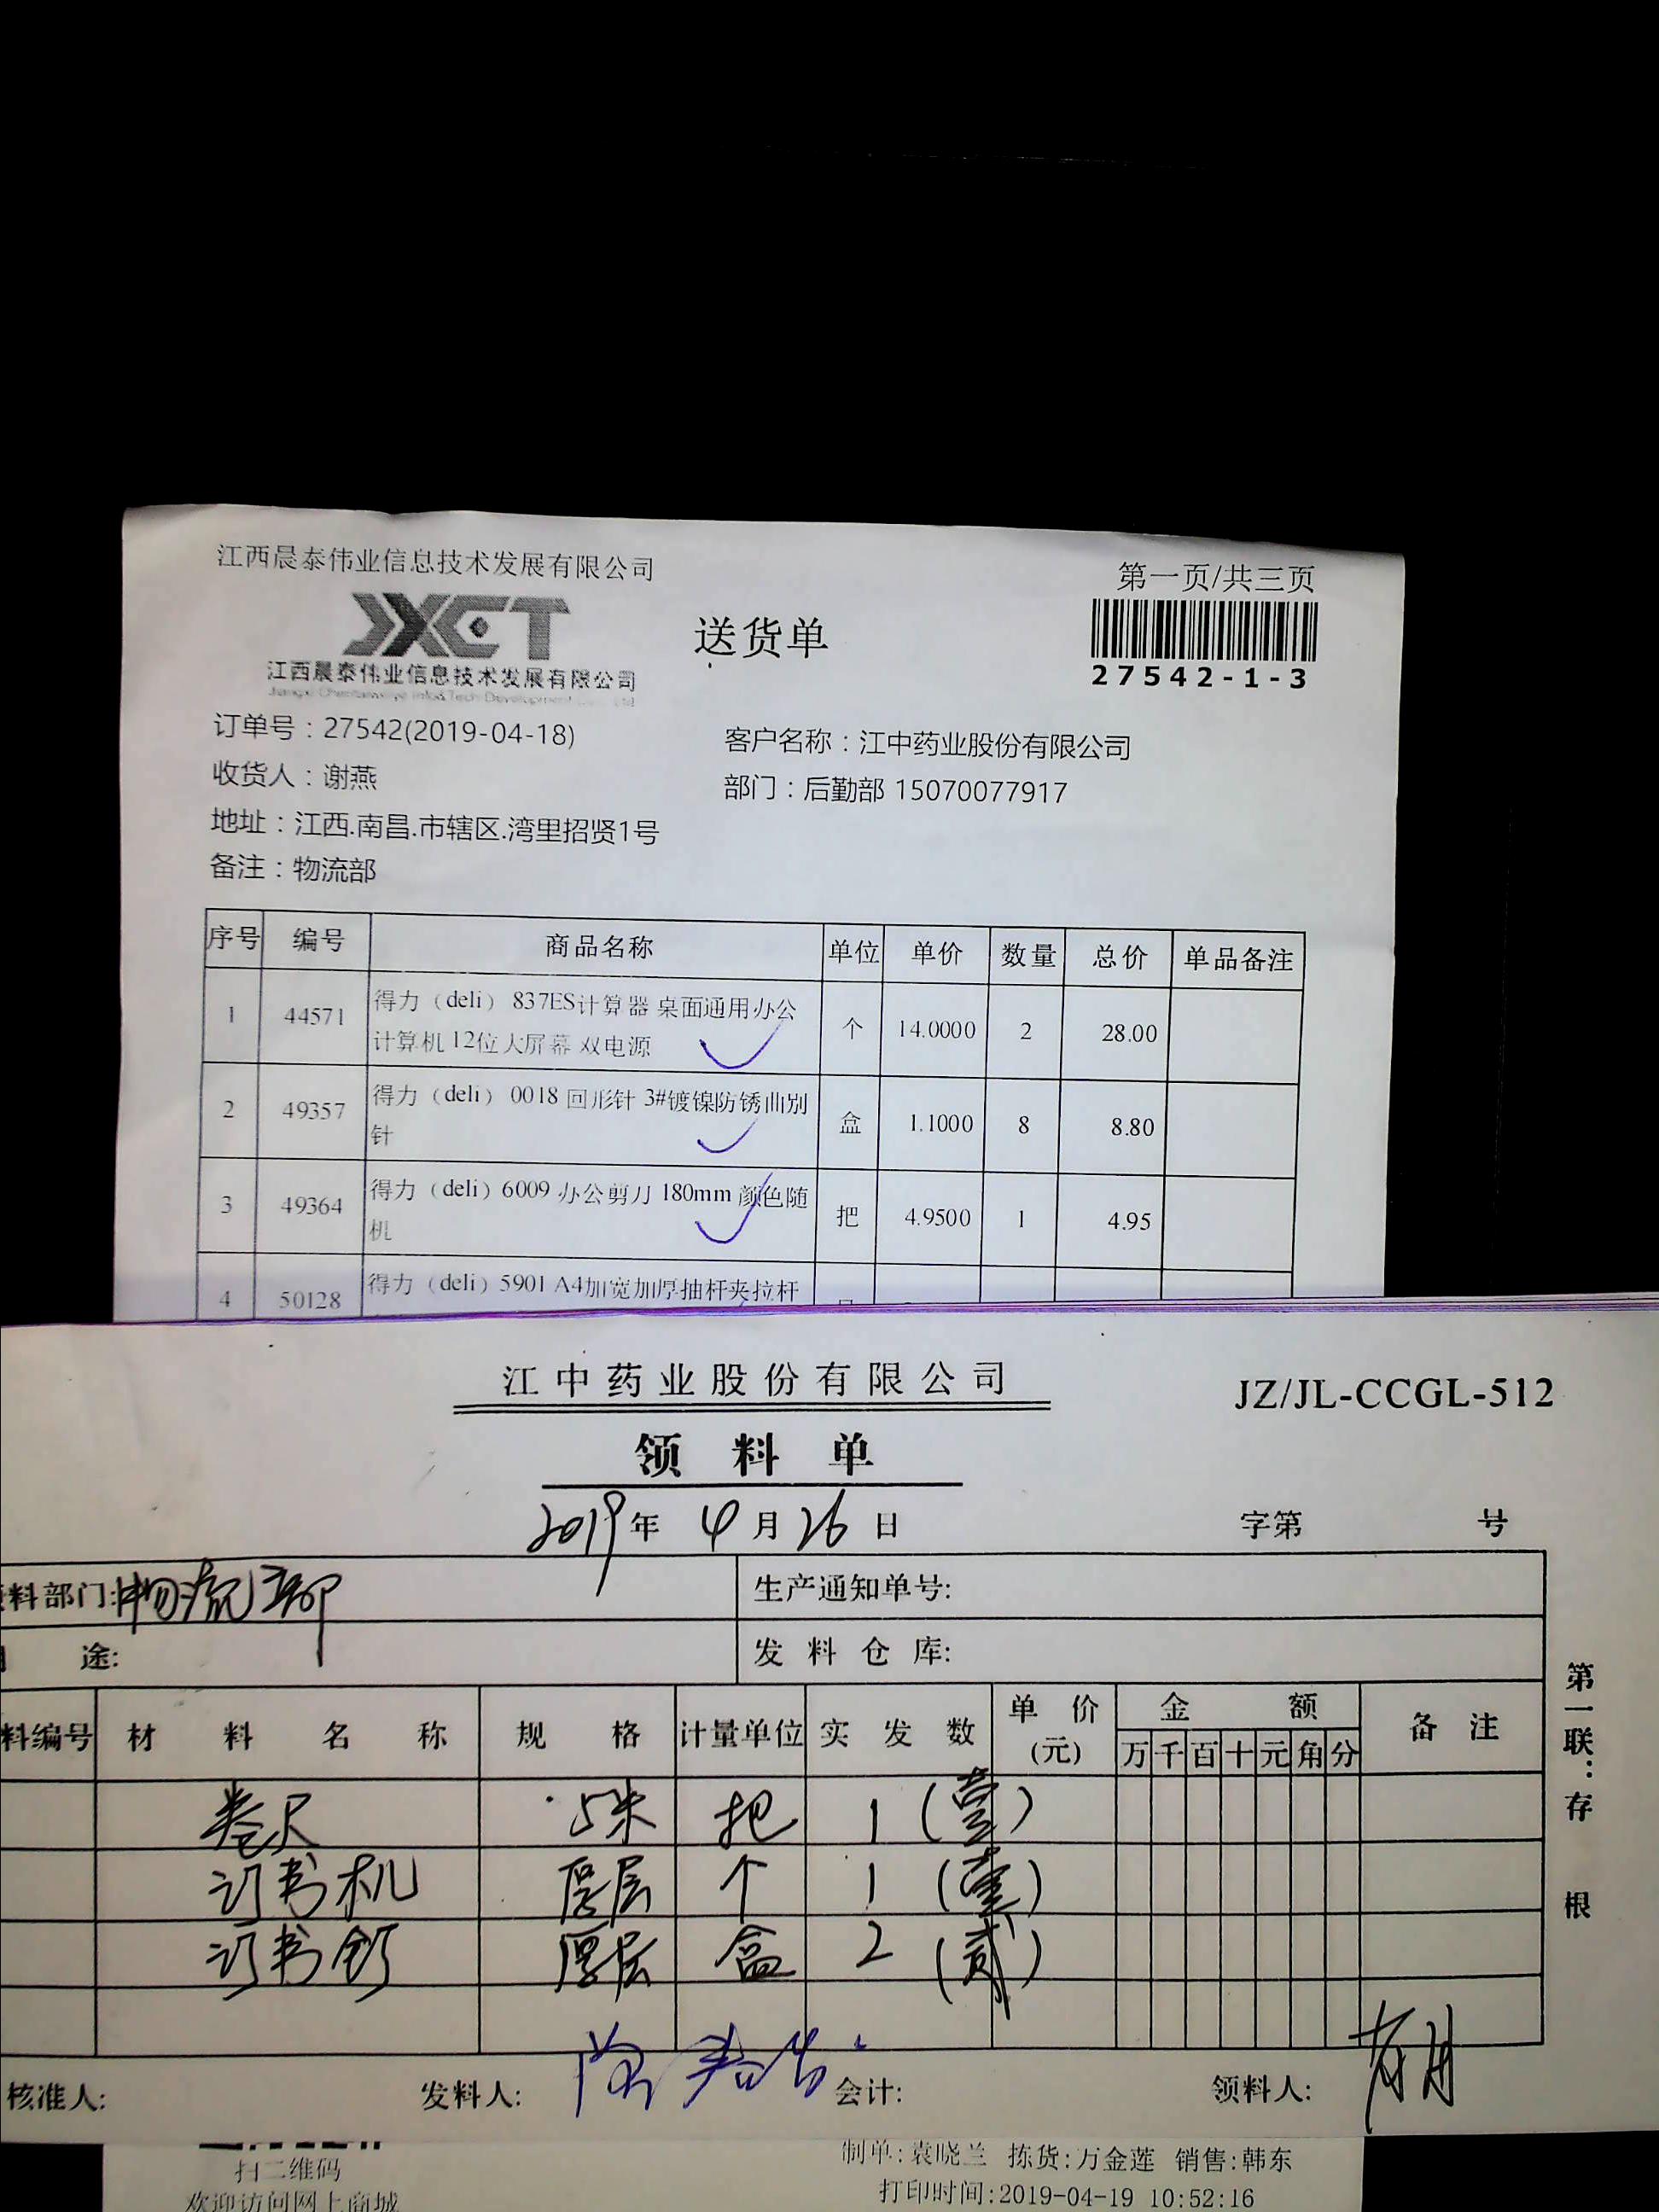 江西晨泰伟业信息技术发展有限公司
第一页/共三页
JXCT
送货单
江西晨泰伟业信息技术发展有限公司
27542-1-3
订单号：27542(2019-04-18)
客户名称：江中药业股份有限公司
收货人：谢燕
部门：后勤部 15070077917
地址：江西.南昌.市辖区.湾里招贤1号
备注：物流部
序号 编号 商品名称 单位 单价 数量 总价 单品备注
1 44571 得力（deli） 837ES计算器 桌面通用办公 个 14.0000 2 28.00
计算机 12位大屏幕 双电源
2 49357 得力（deli） 0018 回形针 3#镀镍防锈曲别 盒 1.1000 8 8.80
针
3 49364 得力（deli）6009 办公剪刀 180mm 颜色随 把 4.9500 1 4.95
机
4 50128 得力（deli）5901 A4加宽加厚抽杆夹拉杆
江中药业股份有限公司
JZ/JL-CCGL-512
领料单
2019年 4月26日 字第 号
料部门:物流部 生产通知单号:
途: 发料仓库:
料编号 材料名称 规格 计量单位 实发数 单价(元) 金额 备注
万千百十元角分
卷尺 5米 把 1(壹)
订书机 厚层 个 1(壹)
订书钉 厚层 盒 2(贰)
第一联：存根
核准人: 发料人: 会计: 领料人:
扫二维码
制单:袁晓兰 拣货:万金莲 销售:韩东
欢迎访问网上商城
打印时间:2019-04-19 10:52:16